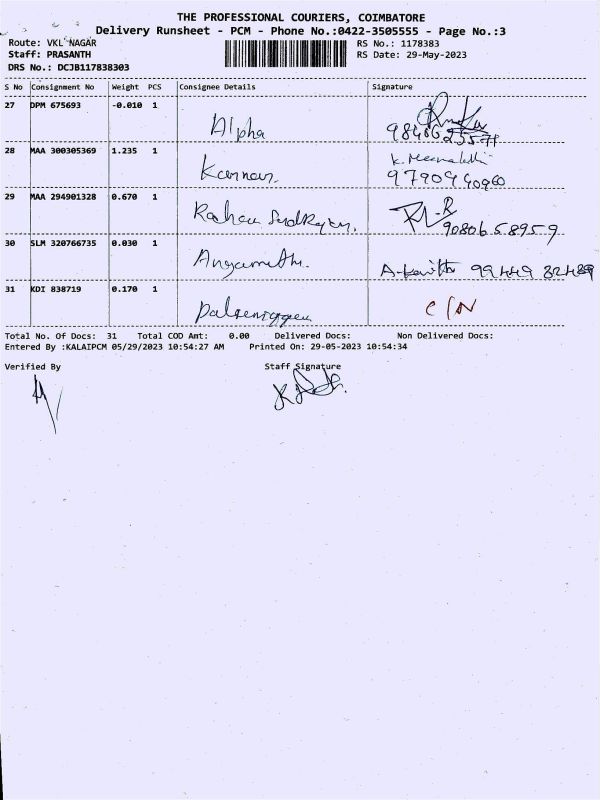 THE PROFESSIONAL COURIERS, COIMBATORE
Delivery Runsheet - PCM - Phone No.:0422-3505555 - Page No.:3
Route: VKL NAGAR RS No.: 1178383
Staff: PRASANTH RS Date: 29-May-2023
DRS No.: DCJB117838303
S No Consignment No Weight PCS Consignee Details Signature
27 DPM 675693 -0.010 1 Alpha
28 MAA 300305369 1.235 1 Kannan. K. Meenakshi
9790940960
29 MAA 294901328 0.670 1
9080658959
30 SLM 320766735 0.030 1
31 KDI 838719 0.170 1 C/N
Total No. Of Docs: 31 Total COD Amt: 0.00 Delivered Docs: Non Delivered Docs:
Entered By :KALAIPCM 05/29/2023 10:54:27 AM Printed On: 29-05-2023 10:54:34
Verified By Staff Signature